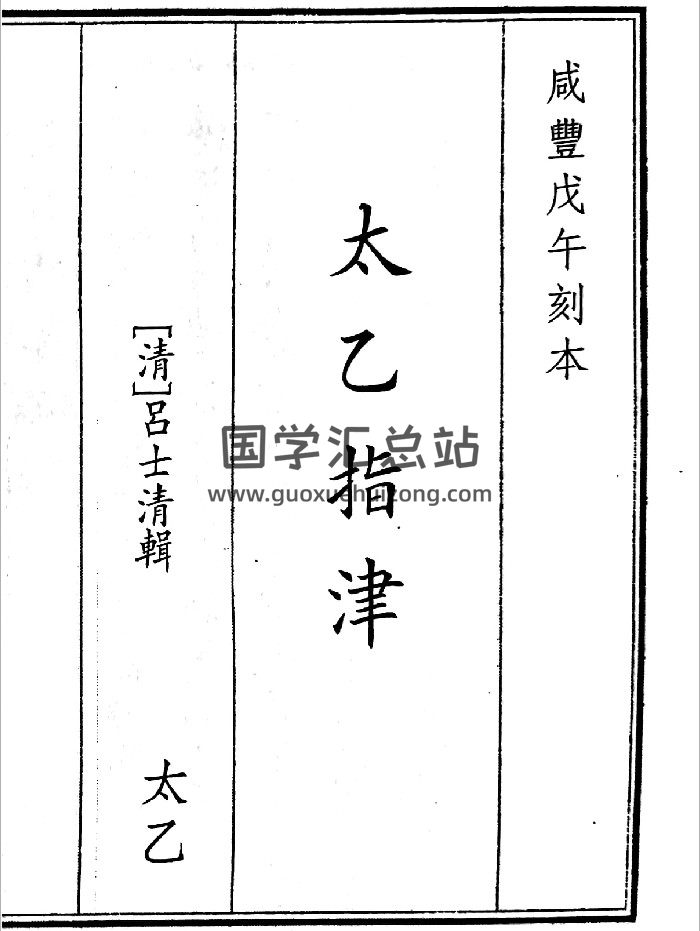 咸豐戊午刻本
太乙指津
[清]呂士清輯
太乙
国学汇总站
www.guoxuehuizong.com